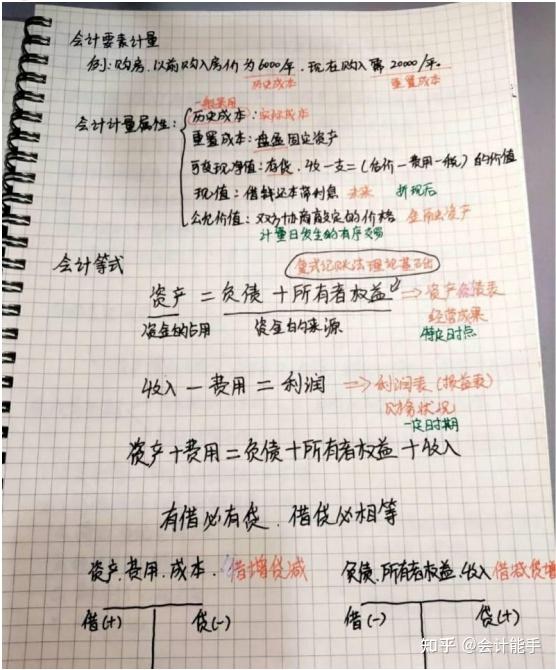 会计要素计量
例:购房.以前购入房价为6000/平.现在购入需20000/平。
历史成本 重置成本
一般采用
会计计量属性:
历史成本:实际成本
重置成本:盘盈固定资产
可变现净值:存货.收一支=(估价一费用一税)的价值
现值:借钱还本带利息 未来 折现后
公允价值:双方协商商定的价格 金融资产
计量日发生的有序交易
会计等式
复式记账法理论基础
资产=负债+所有者权益⇒资产负债表
资金的占用 资金的来源 经营成果
特定日时点
收入一费用=利润⇒利润表(损益表)
财务状况
一定日时期
资产+费用=负债+所有者权益+收入
有借必有贷.借贷必相等
资产.费用.成本.借增贷减 负债.所有者权益.收入借减贷增
借(+) 贷(-) 借(-) 贷(+)
知乎 @会计能手